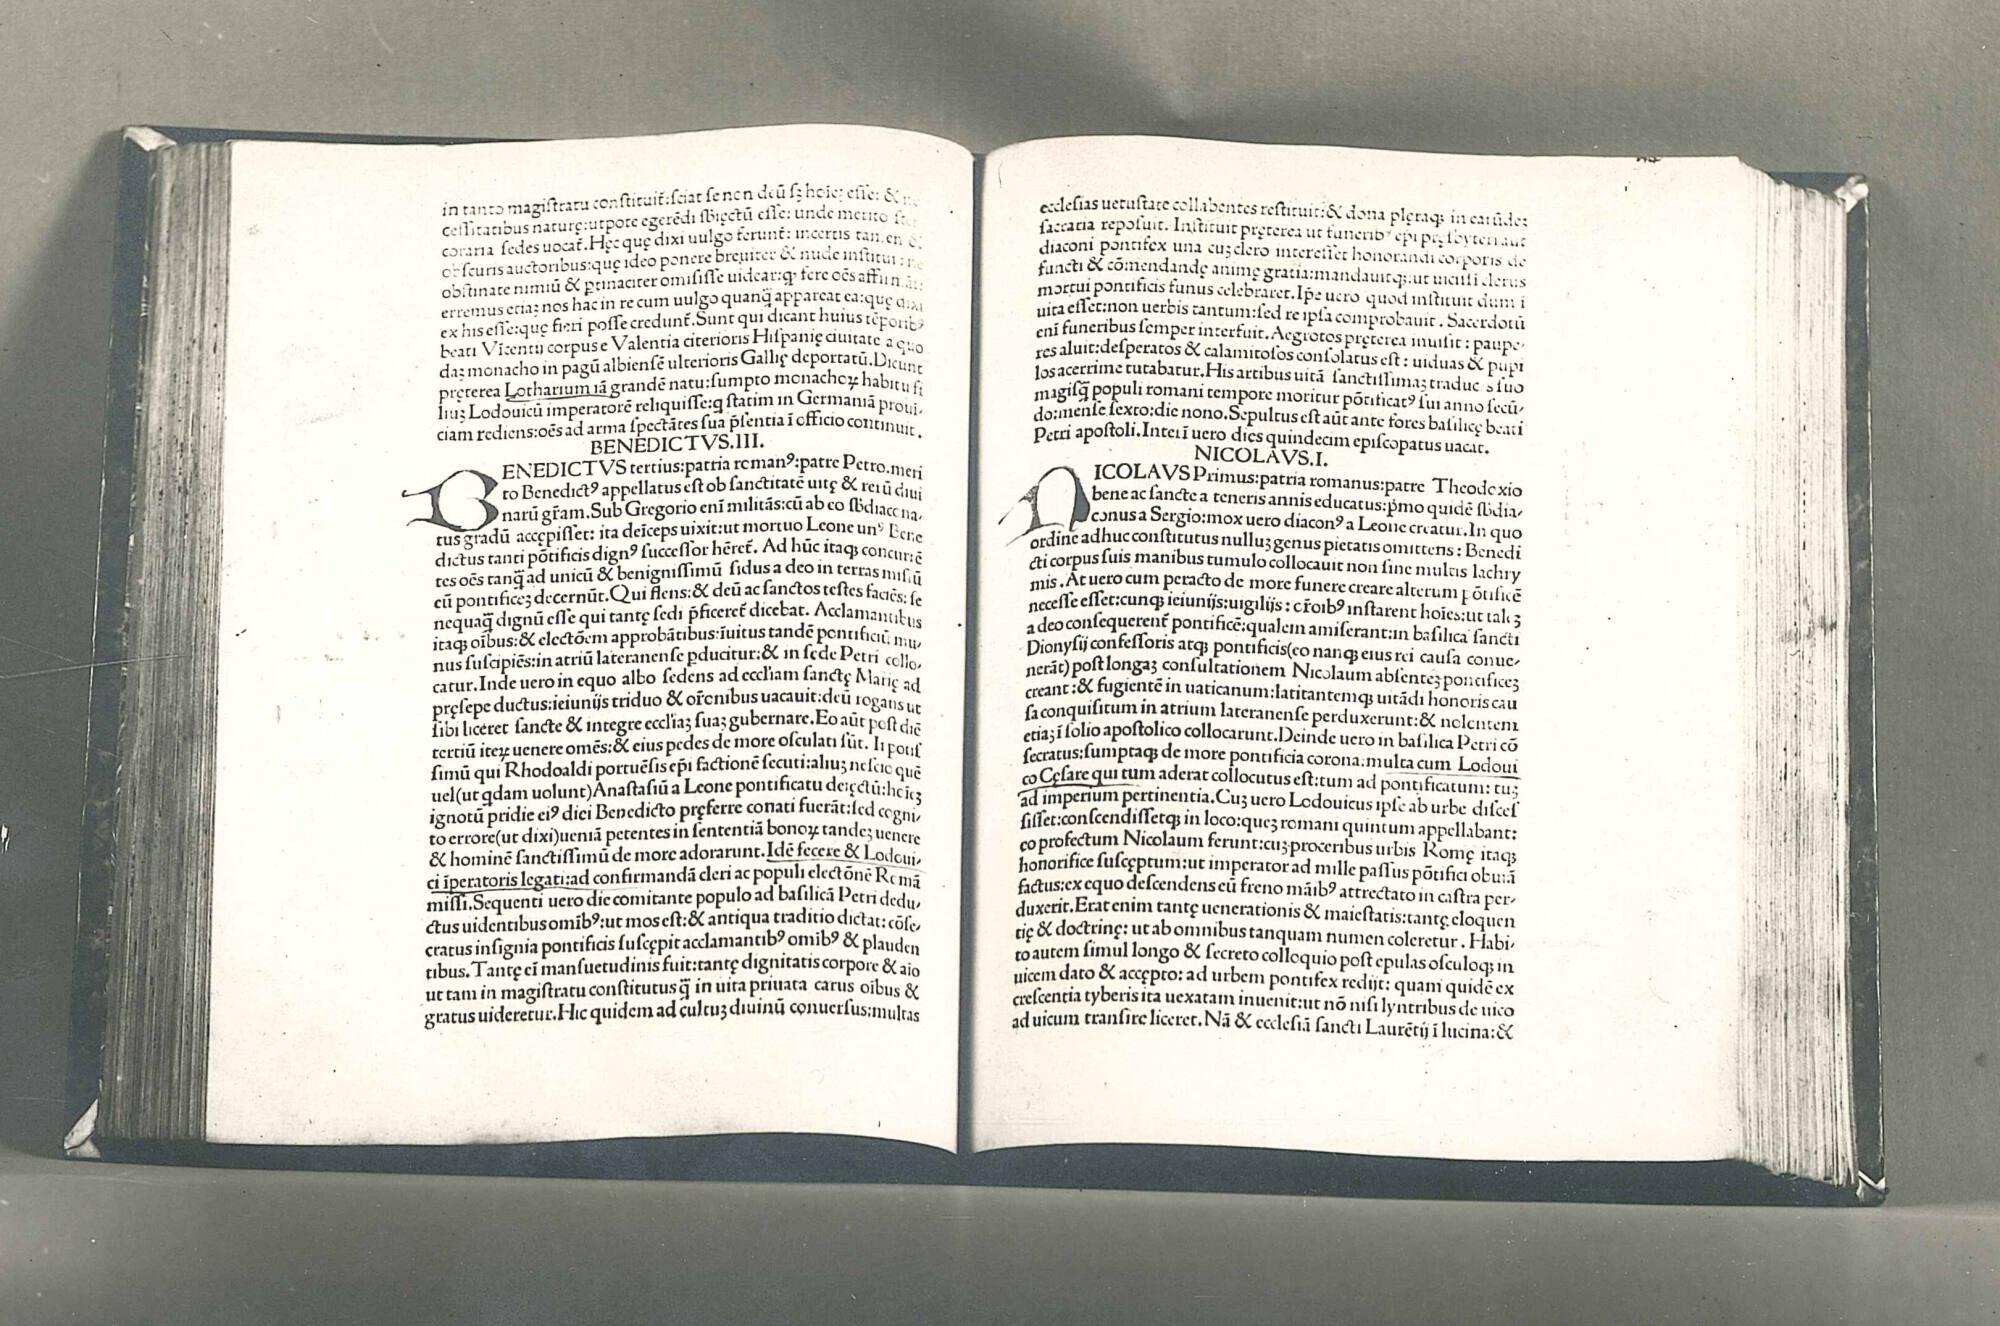 in tanto magistratu constituit̄:sciat se non deū sꝫ hoīeꝫ esse: &
cessitatibus naturę:utpote egerēdi sb̄iectū esse: unde merito
coraria sedes uocat̄. Hęc quę dixi uulgo ferunt̄: incertis tamen &
obscuris auctoribus:quę ideo ponere breuiter & nude institui:
obstinate nimiū & ꝑtinaciter omisisse uidear:ꝙ fere oēs affirmāt:
erremus etiaꝫ nos hac in re cum uulgo quanꝗ̄ appareat ea:quę dixi
ex his esse:quę fieri posse credunt̄. Sunt qui dicant huius tēporibꝰ
beati Vicentij corpus e Valentia citerioris Hispanię ciuitate a quo
daꝫ monacho in pagū albiensē ulterioris Gallię deportatū. Dicunt
pręterea Lotharium iā grandē natu:sumpto monachoꝝ habitu fi
liuꝫ Lodouicū imperatorē reliquisse:q̄ statim in Germaniā proui/
ciam rediens:oēs ad arma spectātes sua p̄sentia ī officio continuit.
BENEDICTVS.III.
BENEDICTVS tertius:patria romanꝰ:patre Petro.meri
to Benedictꝰ appellatus est ob sanctitatē uitę & reiū diui
narū gr̄am. Sub Gregorio enī militās:cū ab eo sb̄diaco na/
tus gradū accępisset: ita deīceps uixit:ut mortuo Leone unꝰ Bene
dictus tanti pōtificis dignꝰ successor hēret̄. Ad hūc itaqꝫ concurrē
tes oēs tanꝗ̄ ad unicū & benignissimū sidus a deo in terras misiū
eū pontificeꝫ decernūt. Qui flens:& deū ac sanctos testes faciēs: se
nequaꝗ̄ dignū esse qui tantę sedi p̄ficeret̄ dicebat. Acclamantibus
itaqꝫ oībus:& electōem approbātibus:īuitus tandē pontificiū mu/
nus suscipiēs:in atriū lateranense ꝑducitur:& in sede Petri collo/
catur. Inde uero in equo albo sedens ad eccl̄iam sanctę Marię ad
pręsepe ductus:ieiunijs triduo & or̄onibus uacauit:deū rogans ut
sibi liceret sancte & integre eccl̄iaꝫ suaꝫ gubernare. Eo aūt post diē
tertiū iteꝝ uenere omēs:& eius pedes de more osculati sūt. Ii potis
simū qui Rhodoaldi portuēsis ep̄i factionē secuti:aliuꝫ nescio quē
uel(ut q̄dam uolunt)Anastasiū a Leone pontificatu deięctū:hoīeꝫ
ignotū pridie eiꝰ diei Benedicto pręferre conati fuerāt:sed cogni/
to errore(ut dixi)ueniā petentes in sententiā bonoꝝ tandeꝫ uenere
& hominē sanctissimū de more adorarunt. Idē fecere & Lodoui/
ci īperatoris legati:ad confirmandā cleri ac populi electōnē Romā
missi. Sequenti uero die comitante populo ad basilicā Petri dedu/
ctus uidentibus omībꝰ:ut mos est:& antiqua traditio dictat: cōse/
cratus insignia pontificis suscępit acclamantibꝰ omībꝰ & plauden
tibus. Tantę eī mansuetudinis fuit:tantę dignitatis corpore & aīo
ut tam in magistratu constitutus ꝗ̄ in uita priuata carus oībus &
gratus uideretur. Hic quidem ad cultuꝫ diuinū conuersus:multas
ecclesias uetustate collabentes restituit:& dona plęraqꝫ in earūdeꝫ
sacraria reposuit. Instituit pręterea ut funeribꝰ ep̄i pręsbyteri aut
diaconi pontifex una cuꝫ clero interesset honorandi corporis de
functi & cōmendandę animę gratia:mandauitqꝫ:ut uicissi clerus
mortui pontificis funus celebraret. Ip̄e uero quod instituit dum ī
uita esset:non uerbis tantum:sed re ipsa comprobauit. Sacerdotū
enī funeribus semper interfuit. Aegrotos pręterea inuisit: paupe/
res aluit:desperatos & calamitosos consolatus est: uiduas & pupi
los acerrime tutabatur. His artibus uitā sanctissimaꝫ traducēs suo
magisꝗ̄ populi romani tempore moritur pōtificatꝰ sui anno secū/
do:mense sexto:die nono. Sepultus est aūt ante fores basilicę beati
Petri apostoli. Interī uero dies quindecim episcopatus uacat.
NICOLAVS.I.
NICOLAVS Primus:patria romanus:patre Theodoxio
bene ac sancte a teneris annis educatus:p̄mo quidē sb̄dia/
conus a Sergio:mox uero diaconꝰ a Leone creatur. In quo
ordine adhuc constitutus nulluꝫ genus pietatis omittens: Benedi
cti corpus suis manibus tumulo collocauit non sine multis lachry
mis. At uero cum peracto de more funere creare alterum pōtificē
necesse esset:cunqꝫ ieiunijs:uigilijs: or̄oibꝰ instarent hoīes:ut taleꝫ
a deo consequerent̄ pontificē:qualem amiserant:in basilica sancti
Dionysij confessoris atqꝫ pontificis(eo nanqꝫ eius rei causa conue/
nerāt)post longaꝫ consultationem Nicolaum absenteꝫ pontificeꝫ
creant:& fugientē in uaticanum:latitantemqꝫ uitādi honoris cau
sa conquisitum in atrium lateranense perduxerunt:& nolentem
etiaꝫ ī solio apostolico collocarunt. Deinde uero in basilica Petri cō
secratus:sumptaqꝫ de more pontificia corona:multa cum Lodoui
co Cęsare qui tum aderat collocutus est:tum ad pontificatum: tuꝫ
ad imperium pertinentia. Cuꝫ uero Lodouicus ipse ab urbe disces
sisset:conscendissetqꝫ in loco:queꝫ romani quintum appellabant:
eo profectum Nicolaum ferunt:cuꝫ proceribus urbis Romę itaqꝫ
honorifice suscęptum:ut imperator ad mille passus pōtifici obuiā
factus:ex equo descendens eū freno māibꝰ attrectato in castra per/
duxerit. Erat enim tantę uenerationis & maiestatis:tantę eloquen
tię & doctrinę: ut ab omnibus tanquam numen coleretur. Habi/
to autem simul longo & secreto colloquio post epulas osculoqꝫ in
uicem dato & accępto: ad urbem pontifex redijt: quam quidē ex
crescentia tyberis ita uexatam inuenit:ut nō nisi lyntribus de uico
ad uicum transire liceret. Nā & ecclesiā sancti Laurētij ī lucina:&